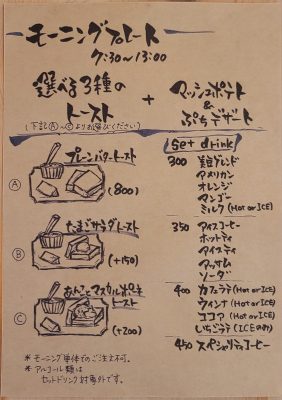 モーニングプレート
7:30~13:00
選べる3種の
トースト
(下記Ⓐ~Ⓒよりお選びください)
+
マッシュポテト
&
ぷちデザート
Set drink
Ⓐ
プレーンバタートースト
(800)
Ⓑ
たまごサラダトースト
(+150)
Ⓒ
あんことマスカルポーネ
トースト
(+200)
300 美豆ブレンド
アメリカン
オレンジ
マンゴー
ミルク (Hot or ICE)
350 アイスコーヒー
ホットティ
アイスティ
アッサム
ソーダ
400 カフェラテ (Hot or ICE)
ウインナ (Hot or ICE)
ココア (Hot or ICE)
いちごラテ (ICEのみ)
450 スペシャリティコーヒー
* モーニング単体でのご注文不可。
* アルコール類は
セットドリンク対象外です。